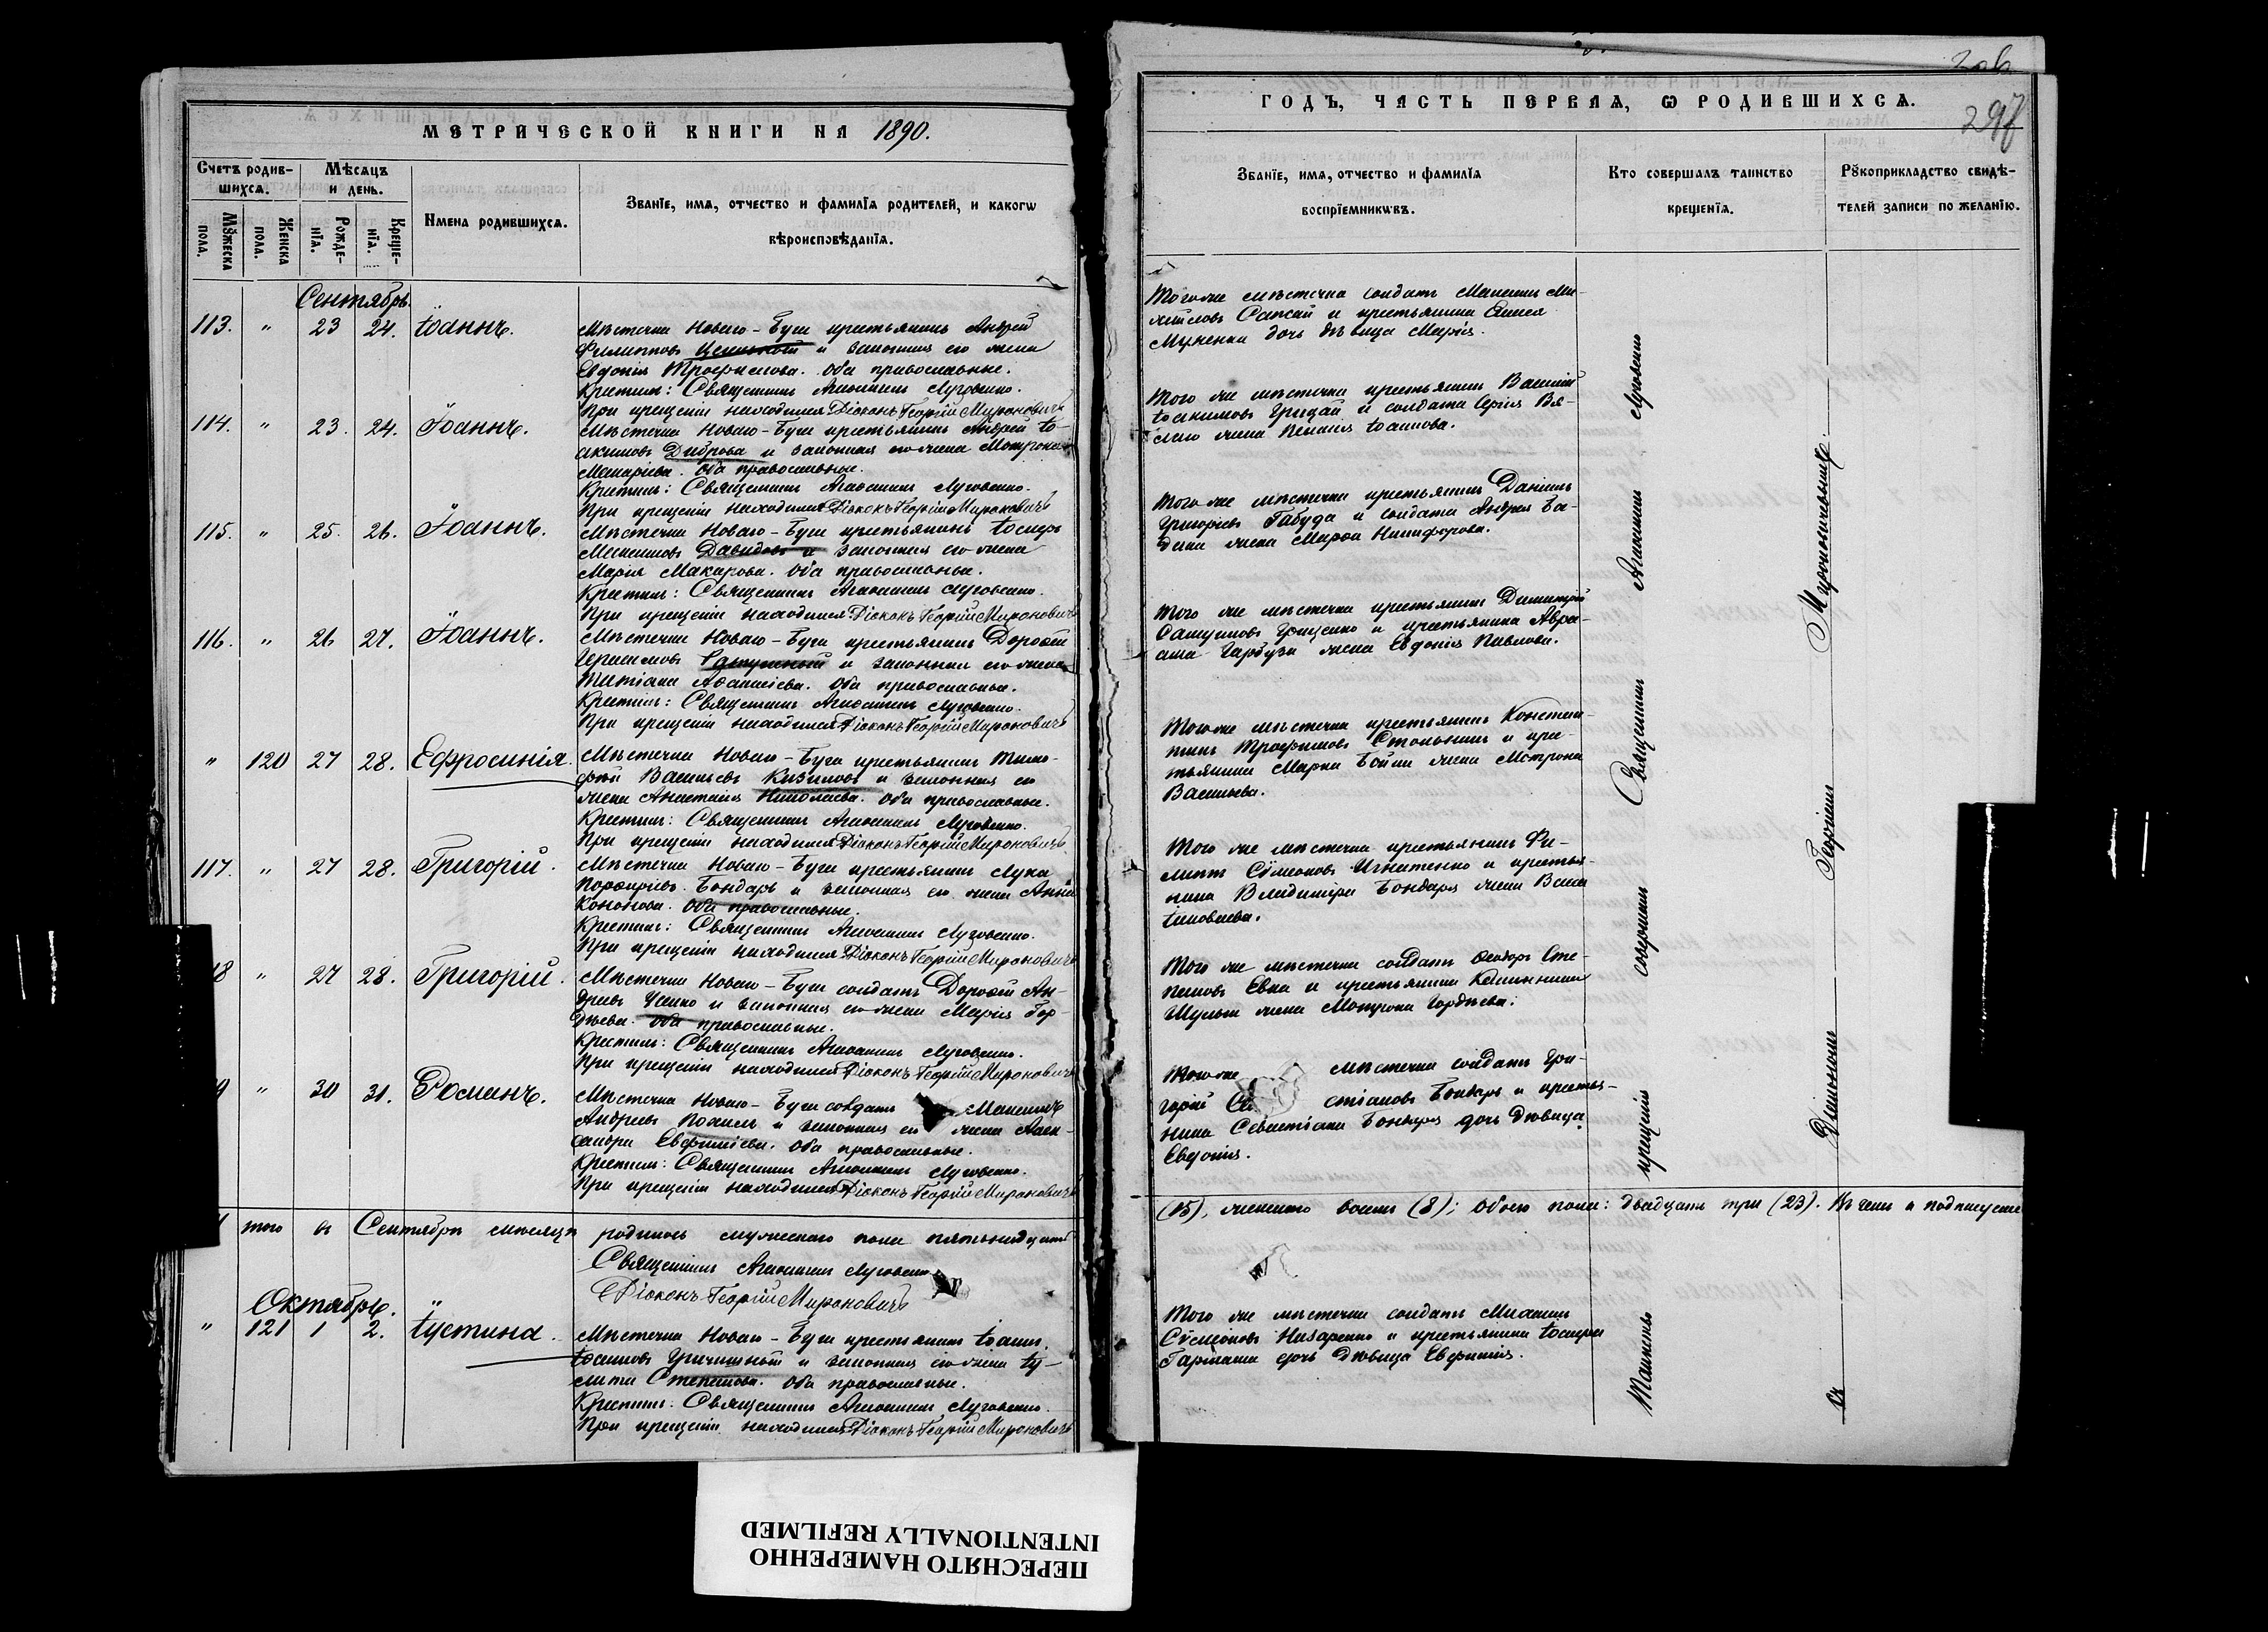 МЕТРИЧЕСКОЙ КНИГИ НА 1890.
Счетъ родив-
шихся.
Мѣсяцъ
и день.
Мꙋжеска
пола.
Женска
пола.
Рожде-
нїя.
Креще-
нїя.
Имена родившихся.
Званїе, имя, отчество и фамилїя родителей, и какогѡ
вѣроисповѣданїя.
Сентябрь.
113. " 23 24. Іоаннъ.
Мѣстечка Новаго-Буга крестьянинъ Андрей
Филипповъ и законная его жена
Евдокія Трофимова. Оба православные.
Крестилъ: Священникъ Луговенко.
При крещеніи находился Діаконъ Георгій Мироновичъ
114. " 23. 24. Іоаннъ.
Мѣстечка Новаго-Буга крестьянинъ Андрей Іо-
акимовъ Диброва и законная его жена Мотрона
Макаріева. Оба православные.
Крестилъ: Священникъ Луговенко.
При крещеніи находился Діаконъ Георгій Мироновичъ
115. " 25. 26. Іоаннъ.
Мѣстечка Новаго-Буга крестьянинъ Іосифъ
Максимовъ Давидовъ и законная его жена
Марія Макарова. Оба православные.
Крестилъ: Священникъ Луговенко.
При крещеніи находился Діаконъ Георгій Мироновичъ
116. " 26 27. Іоаннъ.
Мѣстечка Новаго-Буга крестьянинъ Дороѳей
Герасимовъ и законная его жена
Татіана Аѳанасіева. Оба православные.
Крестилъ: Священникъ Луговенко.
При крещеніи находился Діаконъ Георгій Мироновичъ
" 120 27 28. Ефросинія.
Мѣстечка Новаго-Буга крестьянинъ Тимо-
фей Васильевъ и законная его
жена Анастасія Николаева. Оба православные.
Крестилъ: Священникъ Луговенко.
При крещеніи находился Діаконъ Георгій Мироновичъ
117. " 27 28. Григорій.
Мѣстечка Новаго-Буга крестьянинъ Лука
Порфирьевъ Бондарь и законная его жена Анна
Кононова. Оба православные.
Крестилъ: Священникъ Луговенко.
При крещеніи находился Діаконъ Георгій Мироновичъ
8 " 27 28. Григорій.
Мѣстечка Новаго-Буга солдатъ Дороѳей Ан-
дреевъ Усенко и законная его жена Марія Гор-
дѣева. Оба православные.
Крестилъ: Священникъ Луговенко.
При крещеніи находился Діаконъ Георгій Мироновичъ
9 " 30 31. Романъ.
Мѣстечка Новаго-Буга солдатъ Максимъ
Андреевъ и законная его жена Алек-
сандра Евфиміева. Оба православные.
Крестилъ: Священникъ Луговенко.
При крещеніи находился Діаконъ Георгій Мироновичъ
того въ Сентябрѣ мѣсяцѣ родилось мужескаго пола пятьнадцать
Священникъ Луговенко
Діаконъ Георгій Мироновичъ
Октябрь.
" 121 1 2. Іустина.
Мѣстечка Новаго-Буга крестьянинъ Іоаннъ
и законная его жена Іу-
Степанова. Оба православные.
Крестилъ: Священникъ Луговенко.
При крещеніи находился Діаконъ Георгій Мироновичъ
ГОДЪ, ЧАСТЬ ПЕРВАЯ, Ѡ РОДИВШИХСЯ.
297
Званїе, имя, отчество и фамилїя
воспрїемникѡвъ.
Кто совершалъ таинство
крещенїя.
Рꙋкоприкладство свидѣ-
телей записи по желанїю.
Того же мѣстечка солдатъ Максимъ Ми-
хайловъ и крестьянина
дочь дѣвица Марія.
Того же мѣстечка крестьянинъ Василій
Іоакимовъ Гридай и солдата Сергія Вя-
жена Іоаннова.
Того же мѣстечка крестьянинъ Даніилъ
Григорьевъ Габуда и солдата Андрея Ба-
жена Марѳа Никифорова.
Того же мѣстечка крестьянинъ Димитрій
Грищенко и крестьянина Авра-
ама Гарбуза жена Евдокія Павлова.
Того же мѣстечка крестьянинъ Констан-
тинъ Трофимовъ и кре-
стьянина Марка жена Мотрона
Васильева.
Того же мѣстечка крестьянинъ Фи-
липпъ Сѵмеоновъ Игнатенко и крестья-
нина Владиміра Бондаря жена Васса
Того же мѣстечка солдатъ Ѳеодоръ Сте-
пановъ и крестьянина
Шульги жена Мотрона Гордѣева.
Того же мѣстечка солдатъ Гри-
горій Се стіановъ Бондарь и крестья-
нина Севастіана Бондаря дочь дѣвица
Евдокія.
(15), женскаго восемь (8); обоего пола: двадцать три (23). Въ чемъ и подписуемся
Того же мѣстечка солдатъ Михаилъ
Сѵмеоновъ Назаренко и крестьянина Іосифа
Гармаша дочь дѣвица Евфимія.
Таинство крещенія совершалъ Священникъ Луговенко
съ Діакономъ Георгіемъ Мироновичемъ.
ПЕРЕСНЯТО НАМЕРЕННО
INTENTIONALLY REFILMED